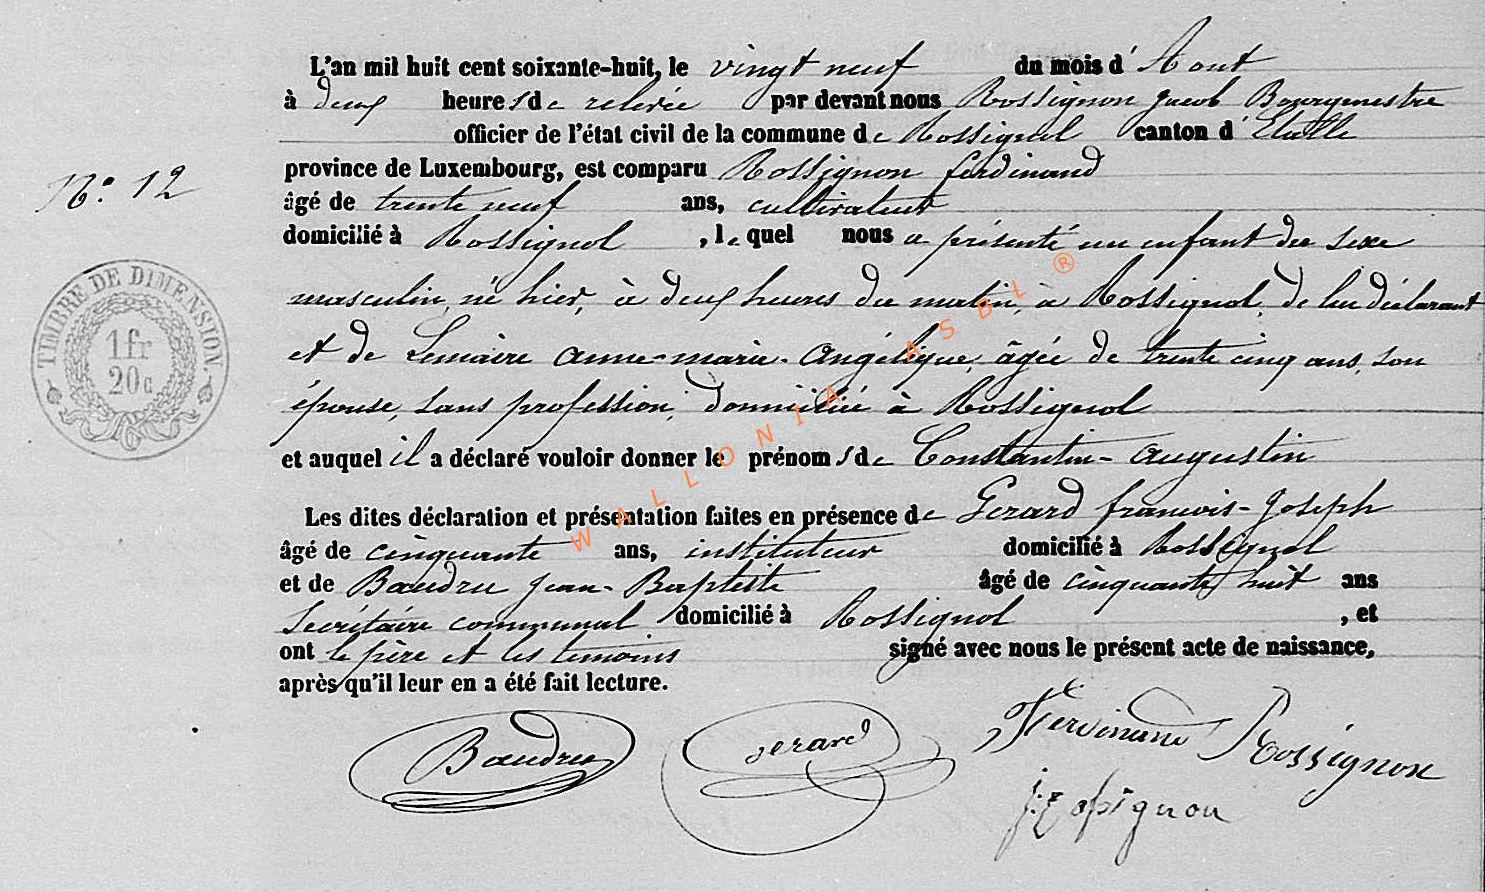 L'an mil huit cent soixante-huit, le vingt neuf du mois d'Aout
à deux heures de relevée par devant nous Rossignon Jacob Bourgmestre
officier de l'état civil de la commune de Rossignol canton d'Etalle
province de Luxembourg, est comparu Rossignon ferdinand
N.° 12
âgé de trente neuf ans, cultivateur
domicilié à Rossignol, lequel nous a présenté un enfant du sexe
masculin, né hier, à deux heures du matin, à Rossignol, de lui déclarant
et de Lemaire anne-marie-angélique, âgée de trente cinq ans, son
épouse, sans profession, domiciliée à Rossignol
et auquel il a déclaré vouloir donner le prénoms de Constantin-augustin
Les dites déclaration et présentation faites en présence de Gerard francois-Joseph
âgé de cinquante ans, instituteur domicilié à Rossignol
et de Baudru Jean-Baptiste âgé de cinquante huit ans
Secrétaire communal domicilié à Rossignol, et
ont le père et les temoins signé avec nous le présent acte de naissance,
après qu'il leur en a été fait lecture.
TIMBRE DE DIMENSION.
1fr
20c
Baudru gerard Ferdinand Rossignon
J. Rossignon
WALLONIA ASBL ®